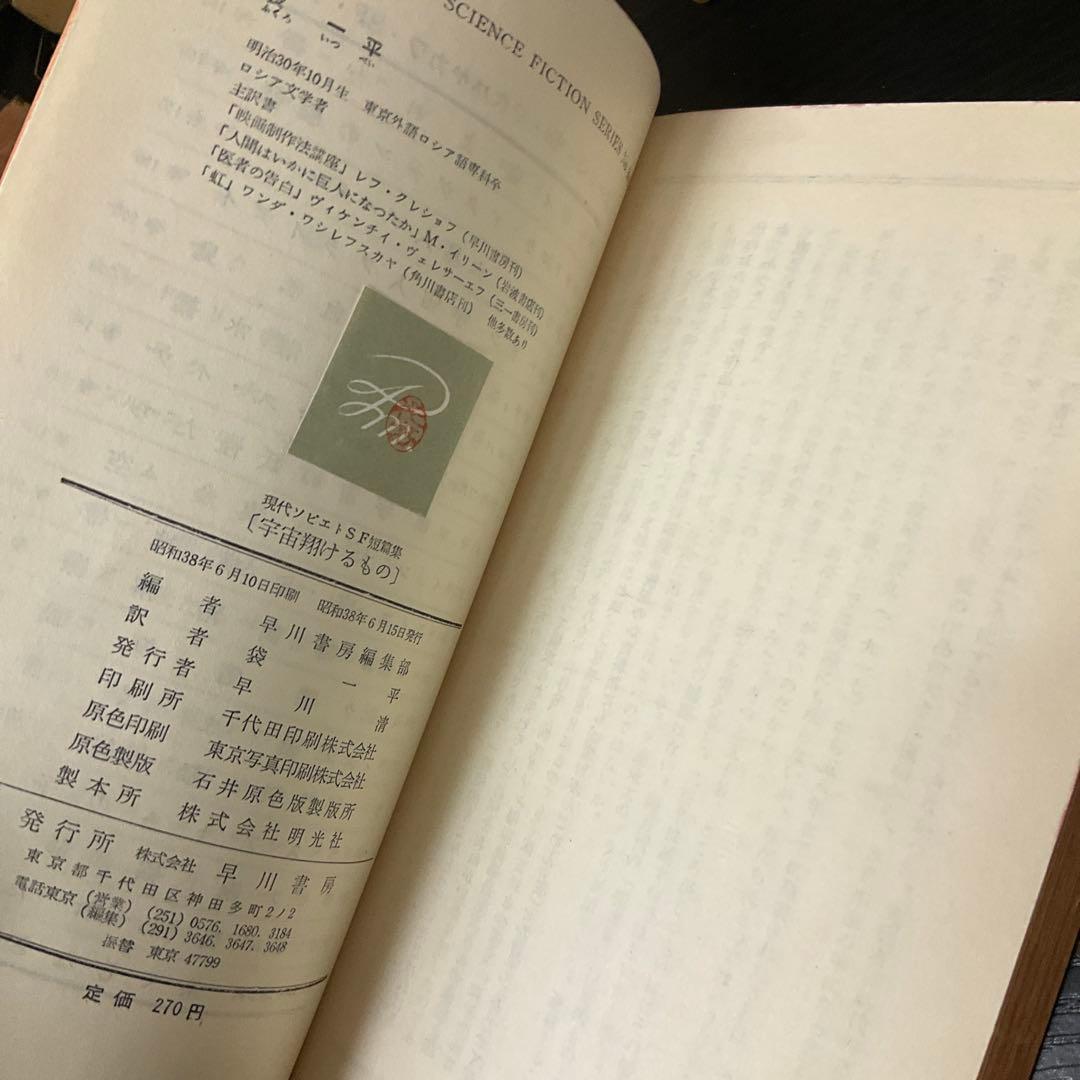 SCIENCE FICTION SERIES
袋 一平
ふくろ いつ ぺい
明治30年10月生 東京外語ロシア語専科卒
ロシア文学者
主訳書
「映画制作法講座」レフ・クレショフ(早川書房刊)
「人間はいかに巨人になつたか」M・イリーン(岩波書店刊)
「医者の告白」ヴィケンチイ・ヴェレサーエフ(三一書房刊)
「虹」ワンダ・ワシレフスカヤ(角川書店刊) 他多数あり
現代ソビエトSF短篇集
〔宇宙翔けるもの〕
昭和38年6月10日印刷 昭和38年6月15日発行
編者 早川書房編集部
訳者 袋一平
発行者 早川清
印刷所 千代田印刷株式会社
原色印刷 東京写真印刷株式会社
原色製版 石井原色版製版所
製本所 株式会社明光社
発行所 株式会社 早川書房
東京都千代田区神田多町2ノ2
電話東京(営業)(251)0576.1680.3184
(編集)(291)3646.3647.3648
振替 東京 47799
定価 270円